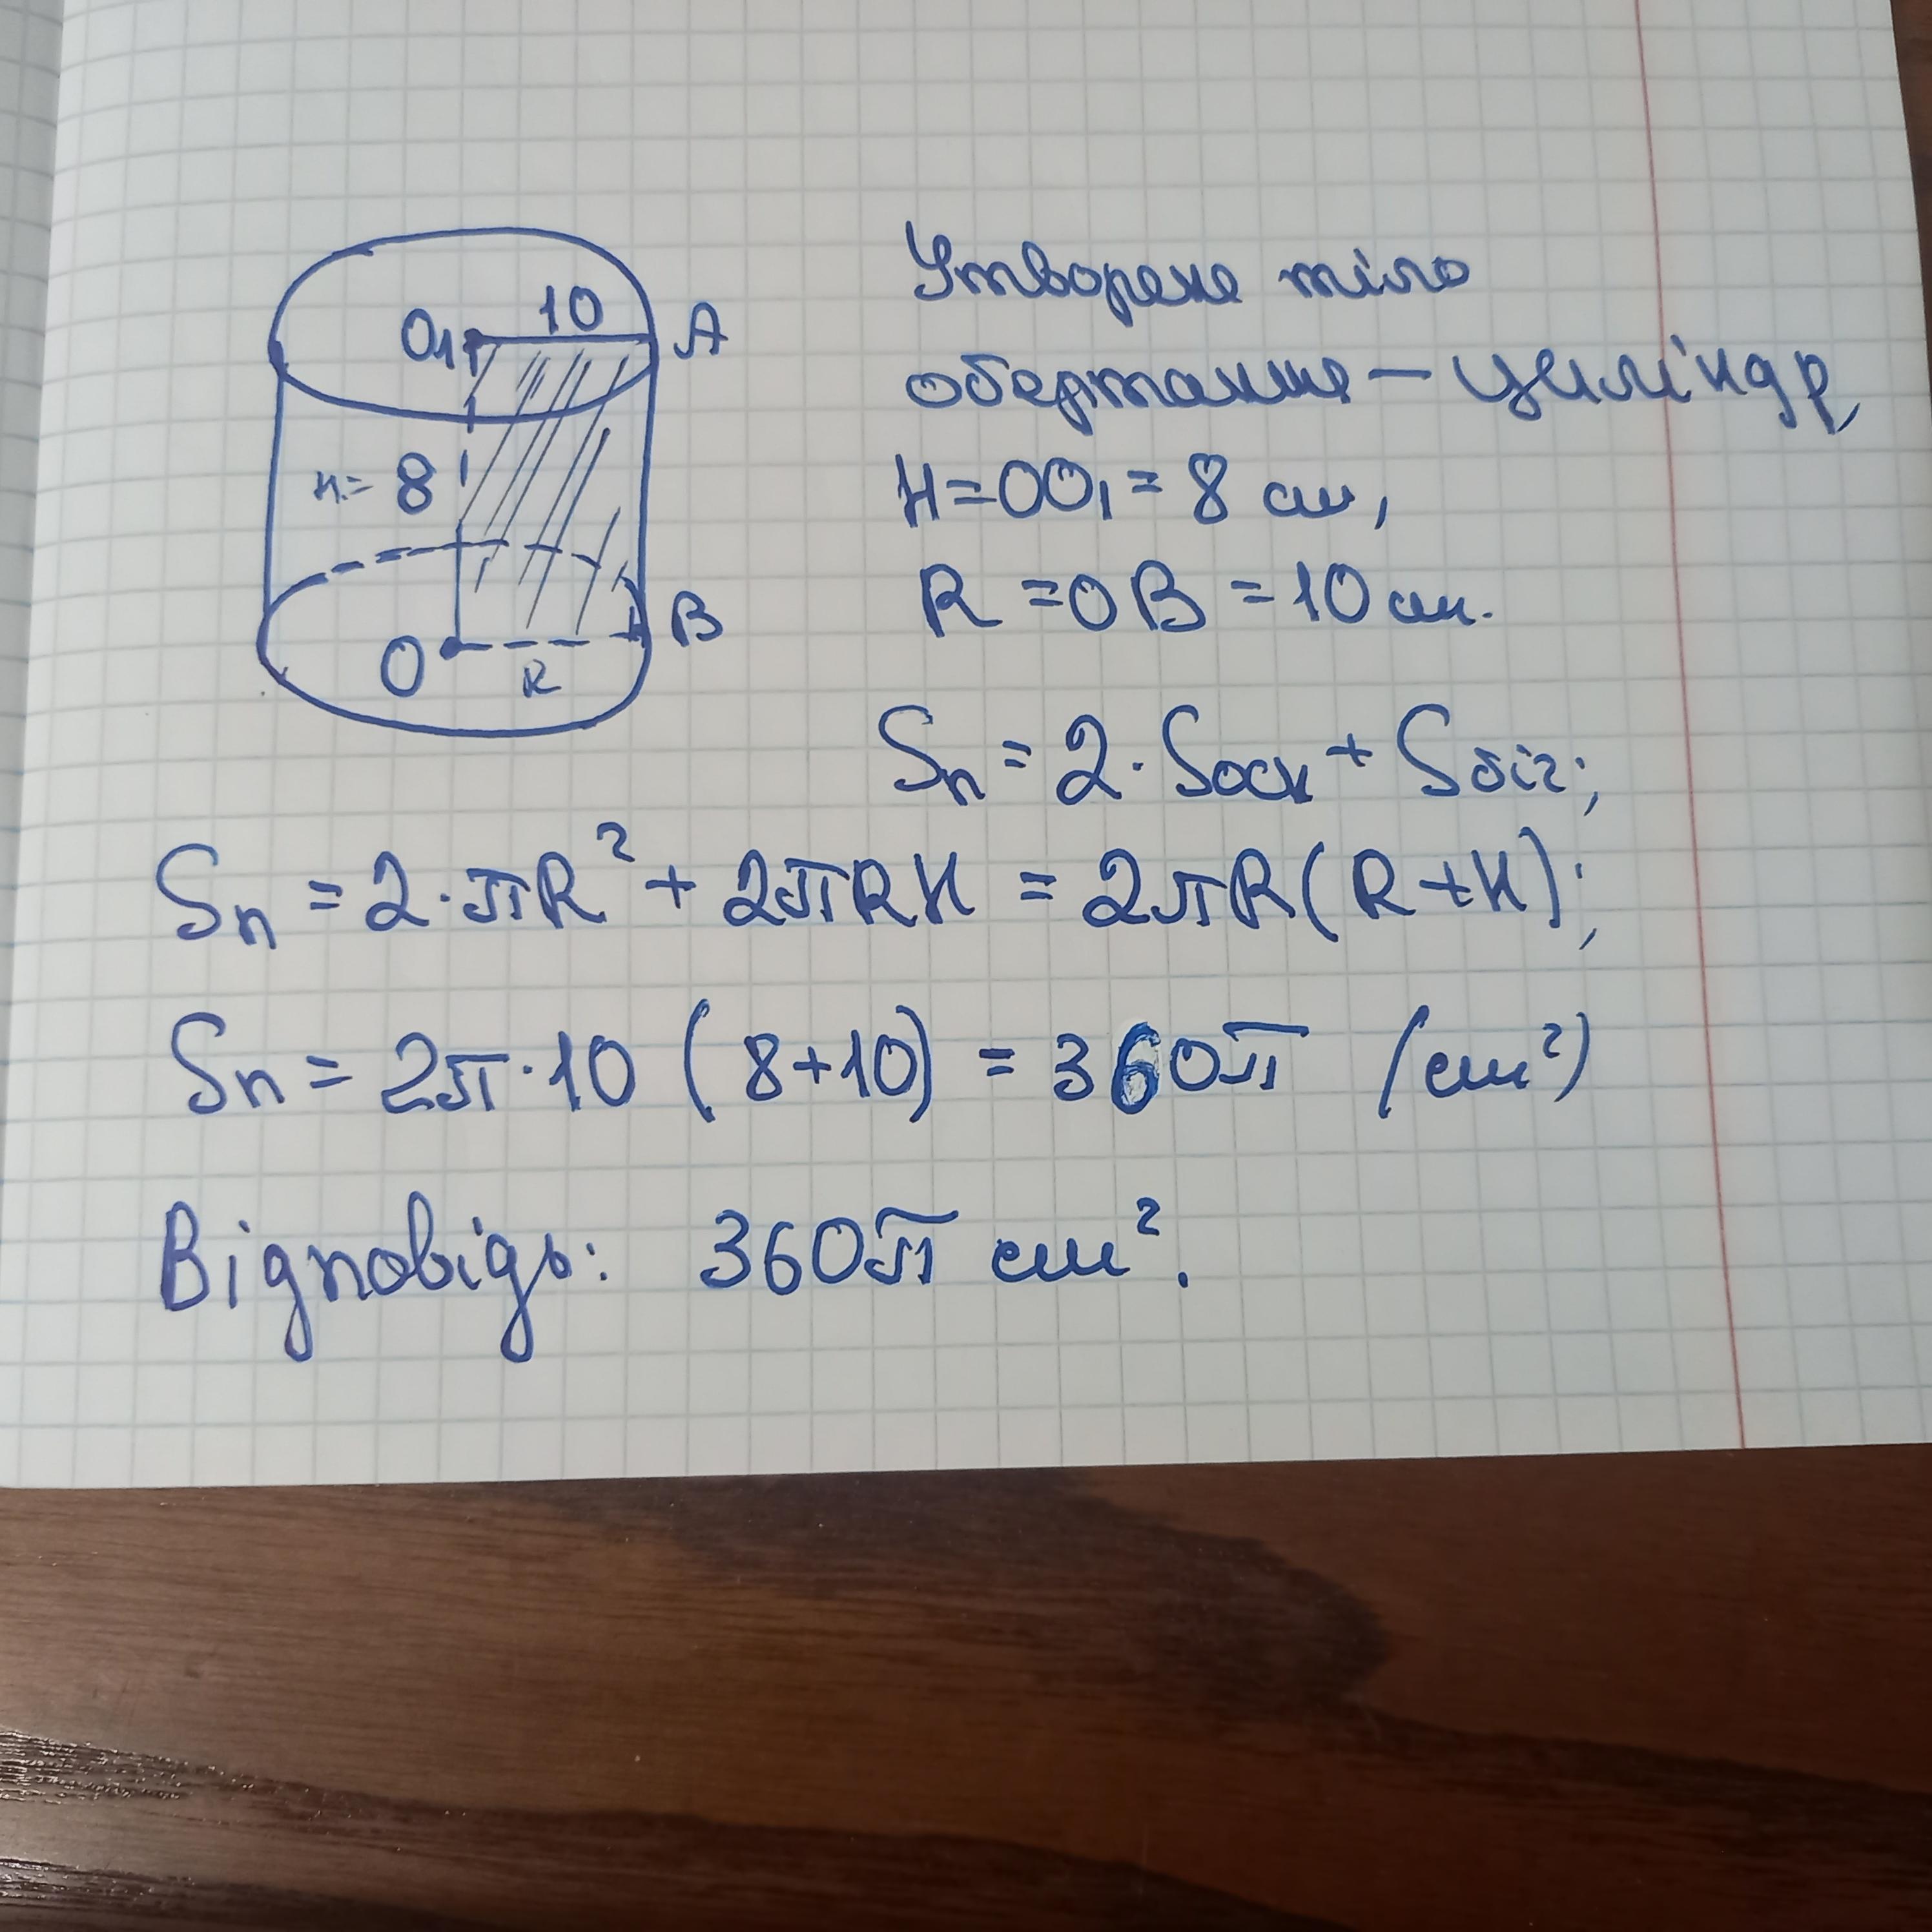 O₁ 10 A
H= 8
O R B
Утворене тіло
обертання – циліндр,
H=OO₁ = 8 см,
R = OB = 10 см.
Sп = 2·Sосн + Sбіч;
Sп = 2·πR² + 2πRH = 2πR(R+H);
Sп = 2π·10 (8+10) = 360π (см²)
Відповідь: 360π см².